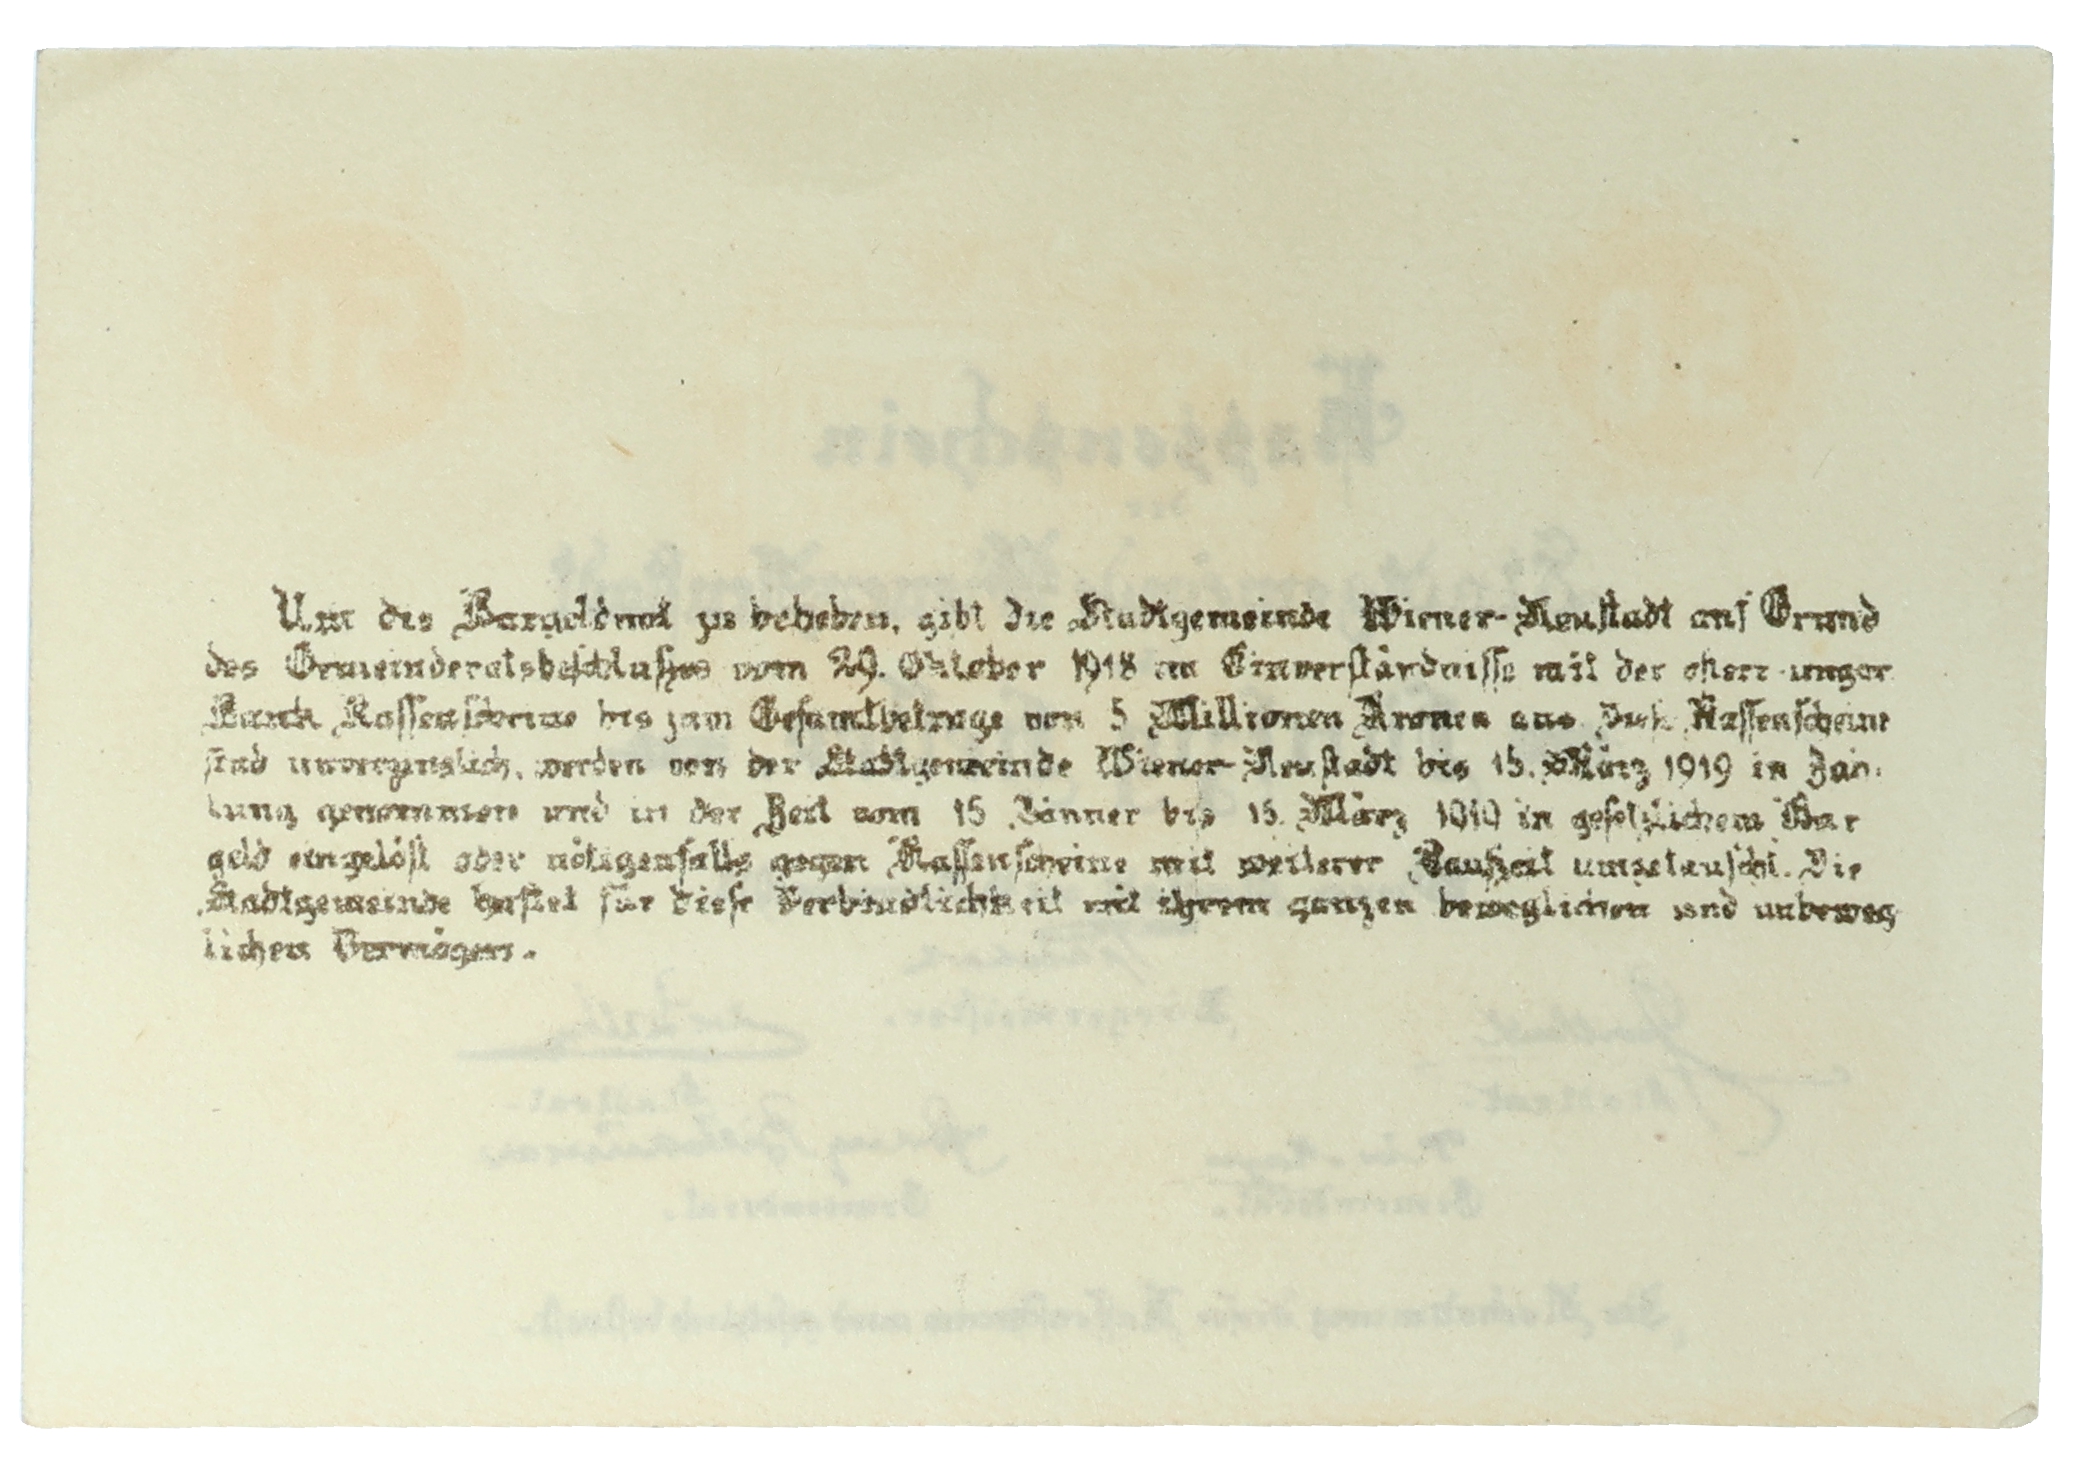 Um die Bargeldnot zu beheben, gibt die Stadtgemeinde Wiener-Neustadt auf Grund
des Gemeinderatsbeschlusses vom 29. Oktober 1918 im Einverständnisse mit der österr-ungar
Bank Kassenscheine bis zum Gesamtbetrage von 5 Millionen Kronen aus Diese Kassenscheine
sind unverzinslich, werden von der Stadtgemeinde Wiener-Neustadt bis 15. März 1919 in Zah-
lung genommen und in der Zeit vom 15 Jänner bis 15. März 1919 in gesetzlichem Bar
geld eingelöst oder nötigenfalls gegen Kassenscheine mit weiterer Laufzeit umgetauscht. Die
Stadtgemeinde haftet für diese Verbindlichkeit mit ihrem ganzen beweglichen und unbeweg
lichen Vermögen.